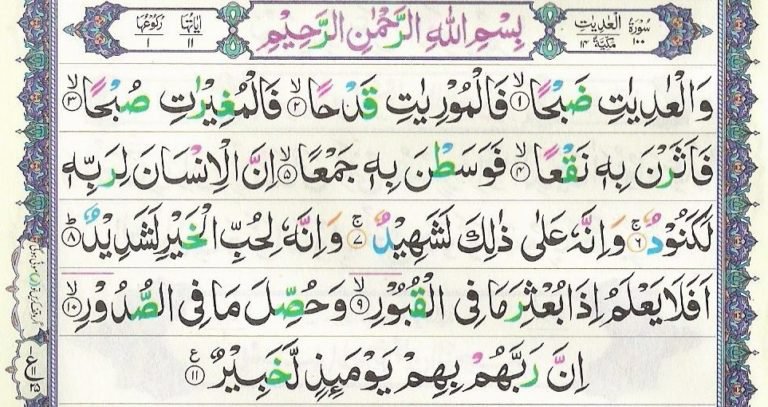 سُوْرَةُ الْعٰدِيٰتِ ١٠٠
مَكِّيَّةٌ ١٤
بِسْمِ اللّٰهِ الرَّحْمٰنِ الرَّحِيْمِ
اٰيَاتُهَا ١١
رُكُوْعُهَا ١
وَالْعٰدِيٰتِ ضَبْحًا ۙ﴿١﴾ فَالْمُوْرِيٰتِ قَدْحًا ۙ﴿٢﴾ فَالْمُغِيْرٰتِ صُبْحًا ۙ﴿٣﴾
فَاَثَرْنَ بِهٖ نَقْعًا ۙ﴿٤﴾ فَوَسَطْنَ بِهٖ جَمْعًا ۙ﴿٥﴾ اِنَّ الْاِنْسَانَ لِرَبِّهٖ
لَكَنُوْدٌ ۚ﴿٦﴾ وَاِنَّهٗ عَلٰى ذٰلِكَ لَشَهِيْدٌ ۚ﴿٧﴾ وَاِنَّهٗ لِحُبِّ الْخَيْرِ لَشَدِيْدٌ ؕ﴿٨﴾
اَفَلَا يَعْلَمُ اِذَا بُعْثِرَ مَا فِى الْقُبُوْرِ ۙ﴿٩﴾ وَحُصِّلَ مَا فِى الصُّدُوْرِ ۙ﴿١٠﴾
اِنَّ رَبَّهُمْ بِهِمْ يَوْمَئِذٍ لَّخَبِيْرٌ ﴿١١﴾ ع